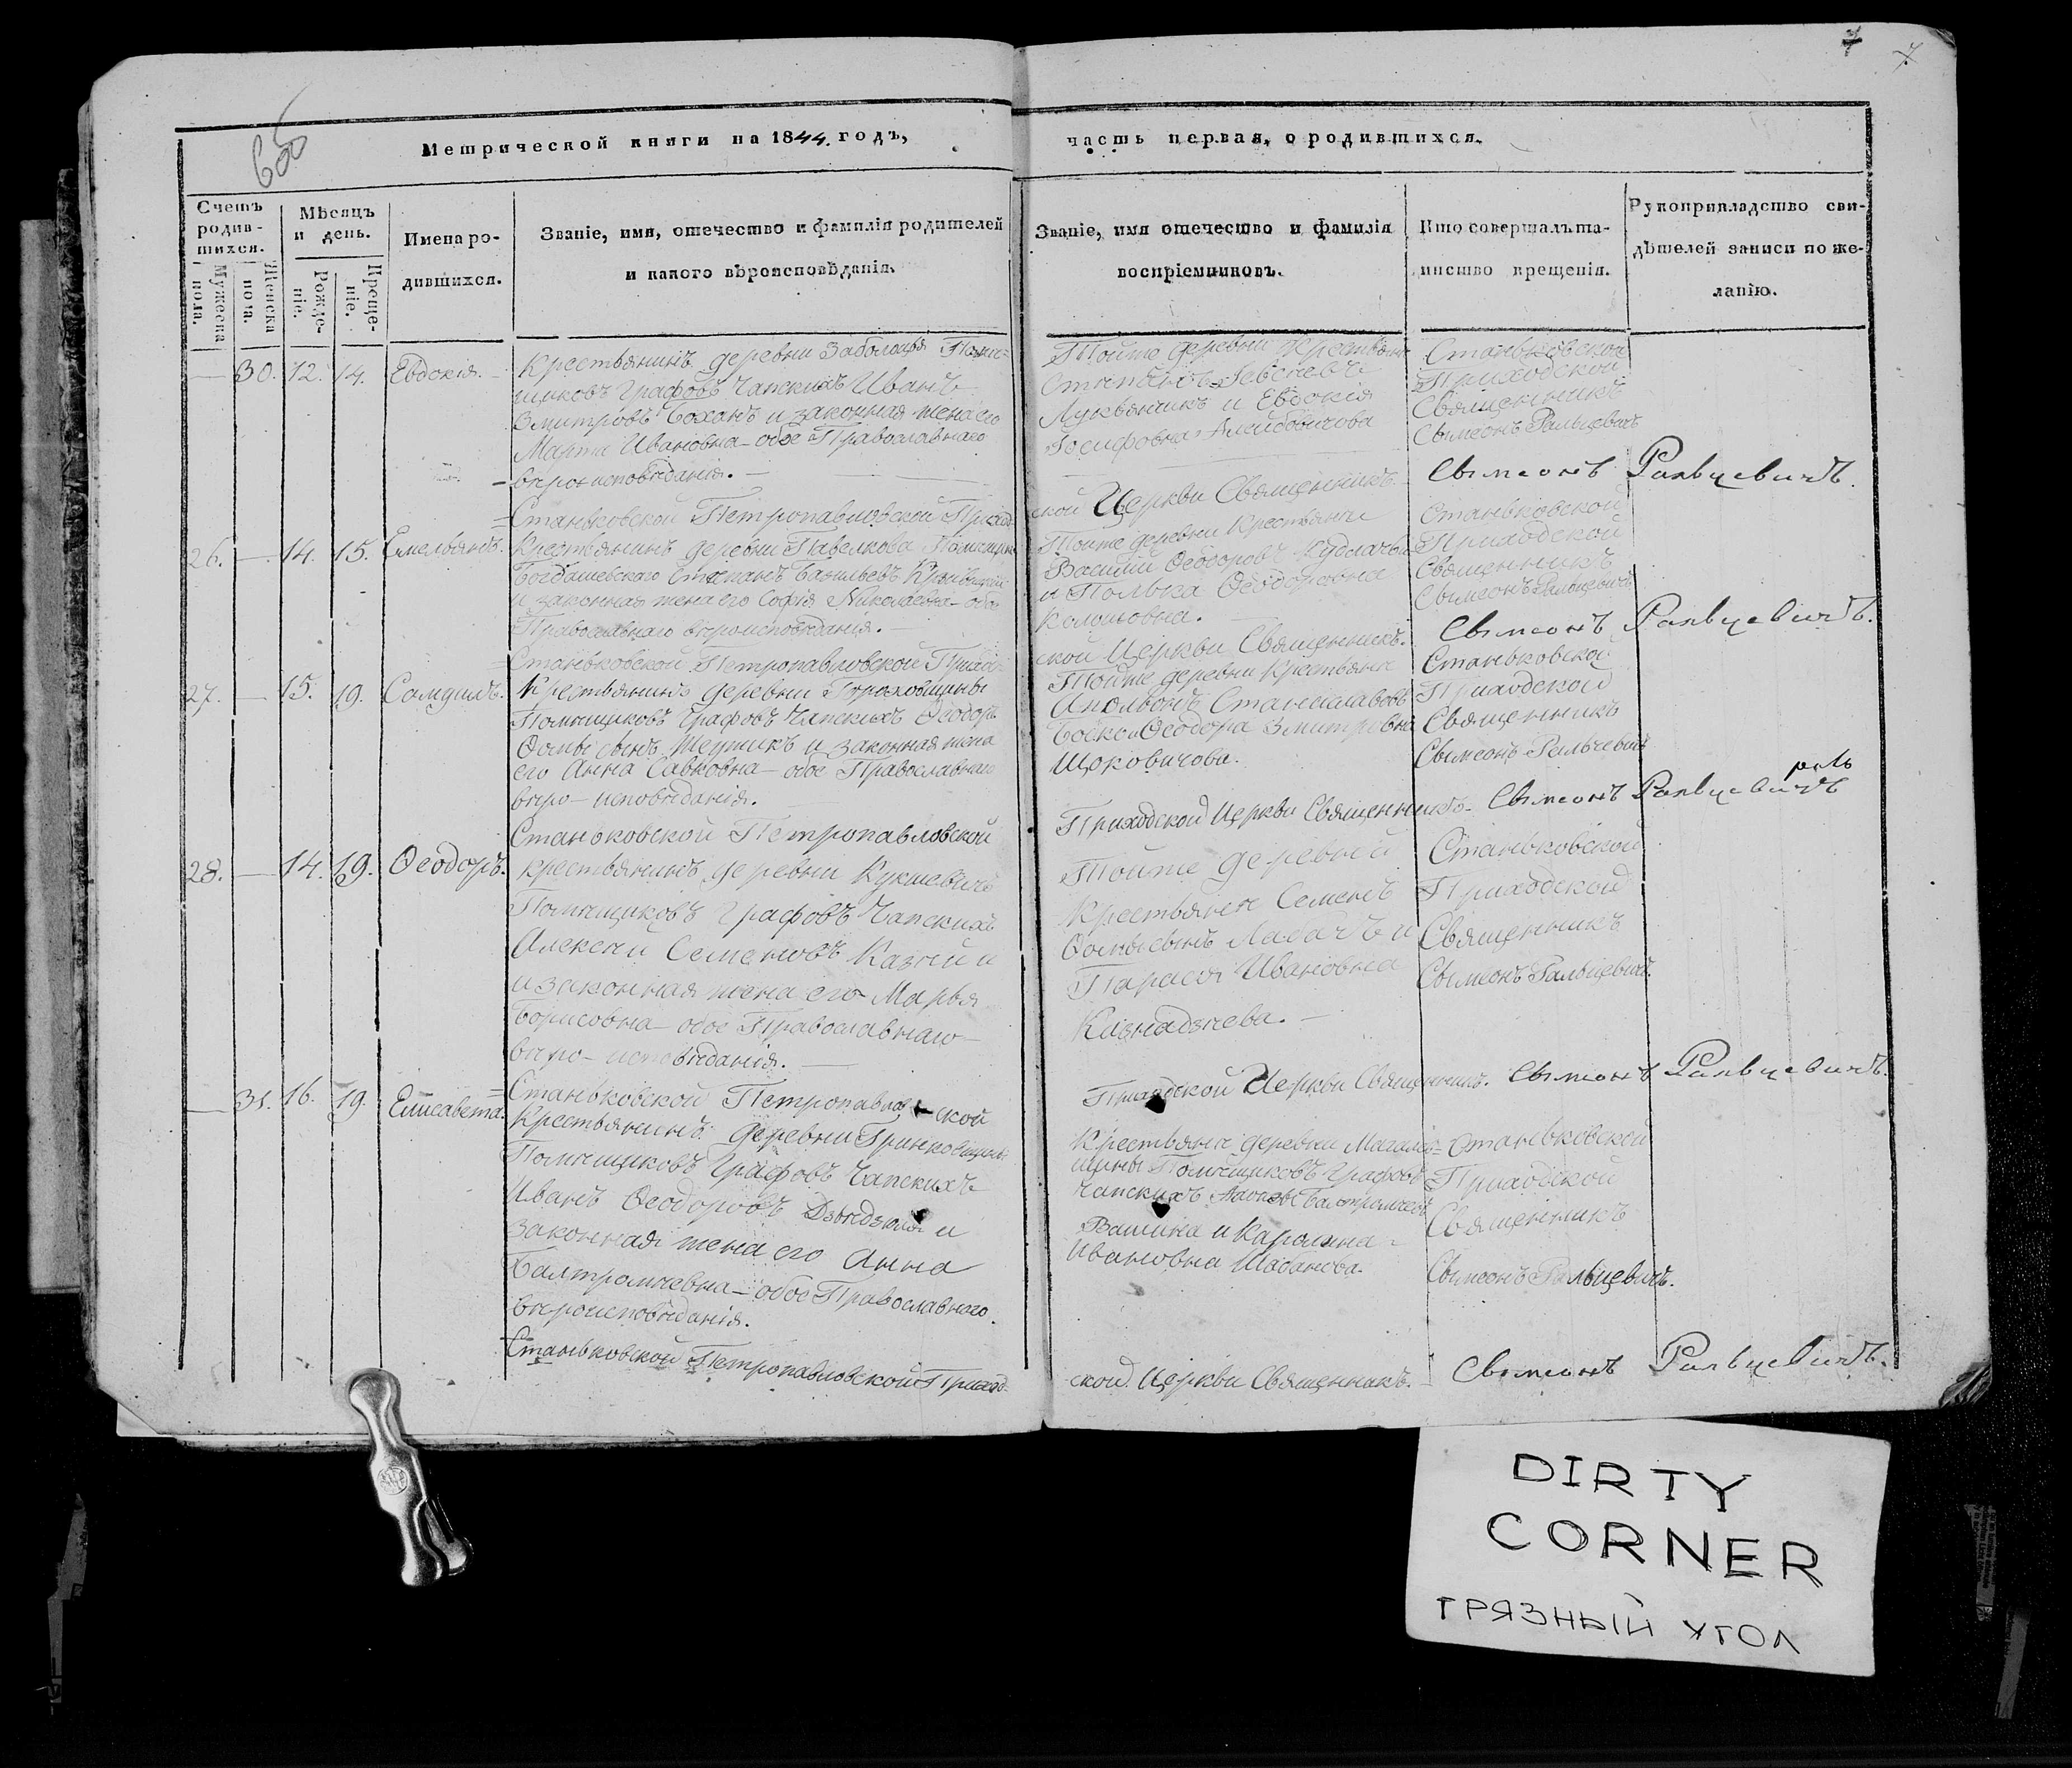 7 7
605
Метрической книги на 1844. годъ,
часть первая, о родившихся.
Счетъ родив-шихся.
Мужеска пола.
Женска пола.
Мѣсяцъ и день.
Рожде-ніе.
Креще-ніе.
Имена ро-
дившихся.
Званіе, имя, отечество и фамилія родителей
и какого вѣроисповѣданія.
Званіе, имя отечество и фамилія
воспріемниковъ.
Кто совершалъ та-
инство крещенія.
Рукоприкладство сви-
дѣтелей записи по же-
ланію.
— 30. 12. 14. Евдокія.
Крестьянинъ деревни Заболотья Помѣ=
щиковъ Графовъ Чапскихъ Иванъ
Змитровъ Боханъ и законная жена его
Марта Ивановна – обое Православнаго
вѣроисповѣданія. —
Тойже деревни Крестьяне
Степанъ
Лукьянчикъ и Евдокія
Іосифовна
Станьковской
Приходской
Священникъ
Сѵмеонъ Ральцевичъ
=Станьковской Петропавловской Приход=
ской Церкви Священникъ Сѵмеонъ Ральцевичъ.
26. — 14. 15. Емельянъ.
Крестьянинъ деревни Павелкова Помѣщика
Богдашевскаго Степанъ Васильевъ
и законная жена его Софія Николаевна – обое
Православнаго вѣроисповѣданія. —
Тойже деревни Крестьяне
Василій Ѳеодоровъ
и Полька Ѳеодоровна
Станьковской
Приходской
Священникъ
Сѵмеонъ Ральцевичъ
=Станьковской Петропавловской Приход=
ской Церкви Священникъ. Сѵмеонъ Ральцевичъ.
27. — 15. 19. Самуилъ.
Крестьянинъ деревни Гороховщины
Помѣщиковъ Графовъ Чапскихъ Ѳеодоръ
Ѳомы сынъ и законная жена
его Анна Савковна – обое Православнаго
вѣро-исповѣданія.
Тойже деревни Крестьяне
Станиславовъ
Ѳеодора Змитровна
Щоковичова.
Станьковской
Приходской
Священникъ
Сѵмеонъ Ральцевичъ
Станьковской Петропавловской
Приходской Церкви Священникъ. Сѵмеонъ Ральцевичъ
28. — 14. 19. Ѳеодоръ.
Крестьянинъ деревни Кукшевичъ
Помѣщиковъ Графовъ Чапскихъ
Алексѣй Семеновъ Казѣй и
и законная жена его Марья
Борисовна – обое Православнаго
вѣро-исповѣданія. —
Тойже деревни
Крестьяне Семенъ
Ѳомы сынъ и
Парася Ивановна
Казнадзѣева. —
Станьковской
Приходской
Священникъ
Сѵмеонъ Ральцевичъ.
=Станьковской Петропавловской
Приходской Церкви Священникъ. Сѵмеонъ Ральцевичъ.
— 31. 16. 19. Елисавета.
Крестьянинъ деревни Гринковщины
Помѣщиковъ Графовъ Чапскихъ
Иванъ Ѳеодоровъ и
законная жена его Анна
Балтромѣевна – обое Православнаго
вѣроисповѣданія.
Крестьяне деревни
щины Помѣщиковъ Графовъ
Чапскихъ Балтромѣевъ
и Каролина
Ивановна Шабанова.
Станьковской
Приходской
Священникъ
Сѵмеонъ Ральцевичъ.
Станьковской Петропавловской Приход=
ской Церкви Священникъ. Сѵмеонъ Ральцевичъ.
DIRTY
CORNER
ГРЯЗНЫЙ УГОЛ